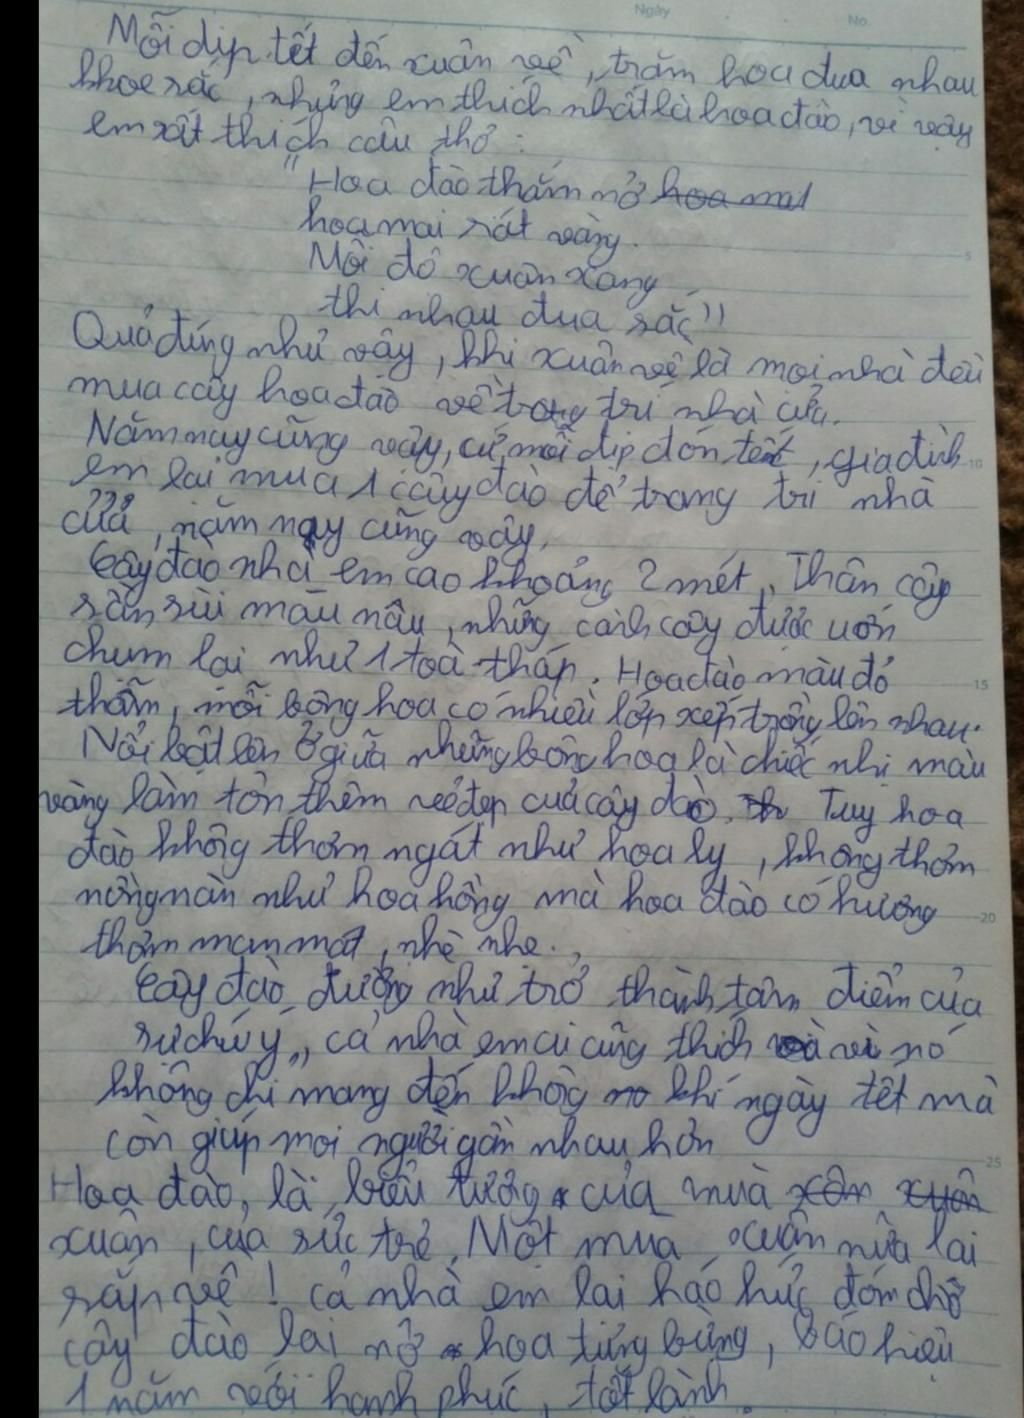 Ngày No.
Mỗi dịp tết đến xuân về, trăm hoa đua nhau
khoe sắc, nhưng em thích nhất là hoa đào, vì vậy
em rất thích câu thơ :
"Hoa đào thắm nở hoa mai
hoa mai rất vàng.
Mỗi độ xuân xang
thi nhau đua sắc"
Quả đúng như vậy, khi xuân về là mọi nhà đều
mua cây hoa đào về trang trí nhà cửa.
Năm nay cũng vậy, cứ mỗi dịp đón tết, gia đình
em lại mua 1 cây đào để trang trí nhà
cửa, năm nay cũng vậy.
Cây đào nhà em cao khoảng 2 mét. Thân cây
sần sùi màu nâu, những cành cây được uốn
chụm lại như 1 toà tháp. Hoa đào màu đỏ
thẫm, mỗi bông hoa có nhiều lớp xếp trồng lên nhau.
Nổi bật lên ở giữa những bông hoa là chiếc nhị màu
vàng làm tôn thêm vẻ đẹp của cây đào. Th Tuy hoa
đào không thơm ngát như hoa ly, không thơm
nồng nàn như hoa hồng mà hoa đào có hương
thơm man mát, nhè nhẹ.
Cây đào dường như trở thành tâm điểm của
sự chú ý, cả nhà em ai cũng thích và vì nó
không chỉ mang đến không no khí ngày tết mà
còn giúp mọi người gần nhau hơn
Hoa đào, là biểu tượng của mùa xôn xuân
xuân, của sức trẻ. Một mùa xuân nữa lại
sắp về ! cả nhà em lại háo hức đón chờ
cây đào lại nở hoa tưng bừng, báo hiệu
1 năm với hạnh phúc, tốt lành.
5
10
15
20
25